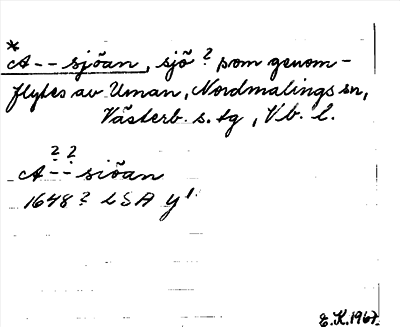 *
A--sjöan, sjö? som genom-
flytes av Uman, Nordmalings sn,
Västerb. s. tg, Vb. l.
? ?
A--siöan
1648? LSA y¹
E.K.1967.